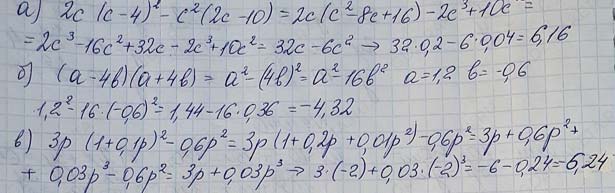 а) 2c (c-4)² - c² (2c-10) = 2c (c² - 8c + 16) - 2c³ + 10c² =
= 2c³ - 16c² + 32c - 2c³ + 10c² = 32c - 6c² → 32·0,2 - 6·0,04 = 6,16
б) (a-4b)(a+4b) = a² - (4b)² = a² - 16b² a = 1,2 b = -0,6
1,2² - 16·(-0,6)² = 1,44 - 16·0,36 = -4,32
в) 3p (1+0,1p)² - 0,6p² = 3p (1+0,2p+0,01p²) - 0,6p² = 3p + 0,6p² +
+ 0,03p³ - 0,6p² = 3p + 0,03p³ → 3·(-2) + 0,03·(-2)³ = -6 - 0,24 = 6,24